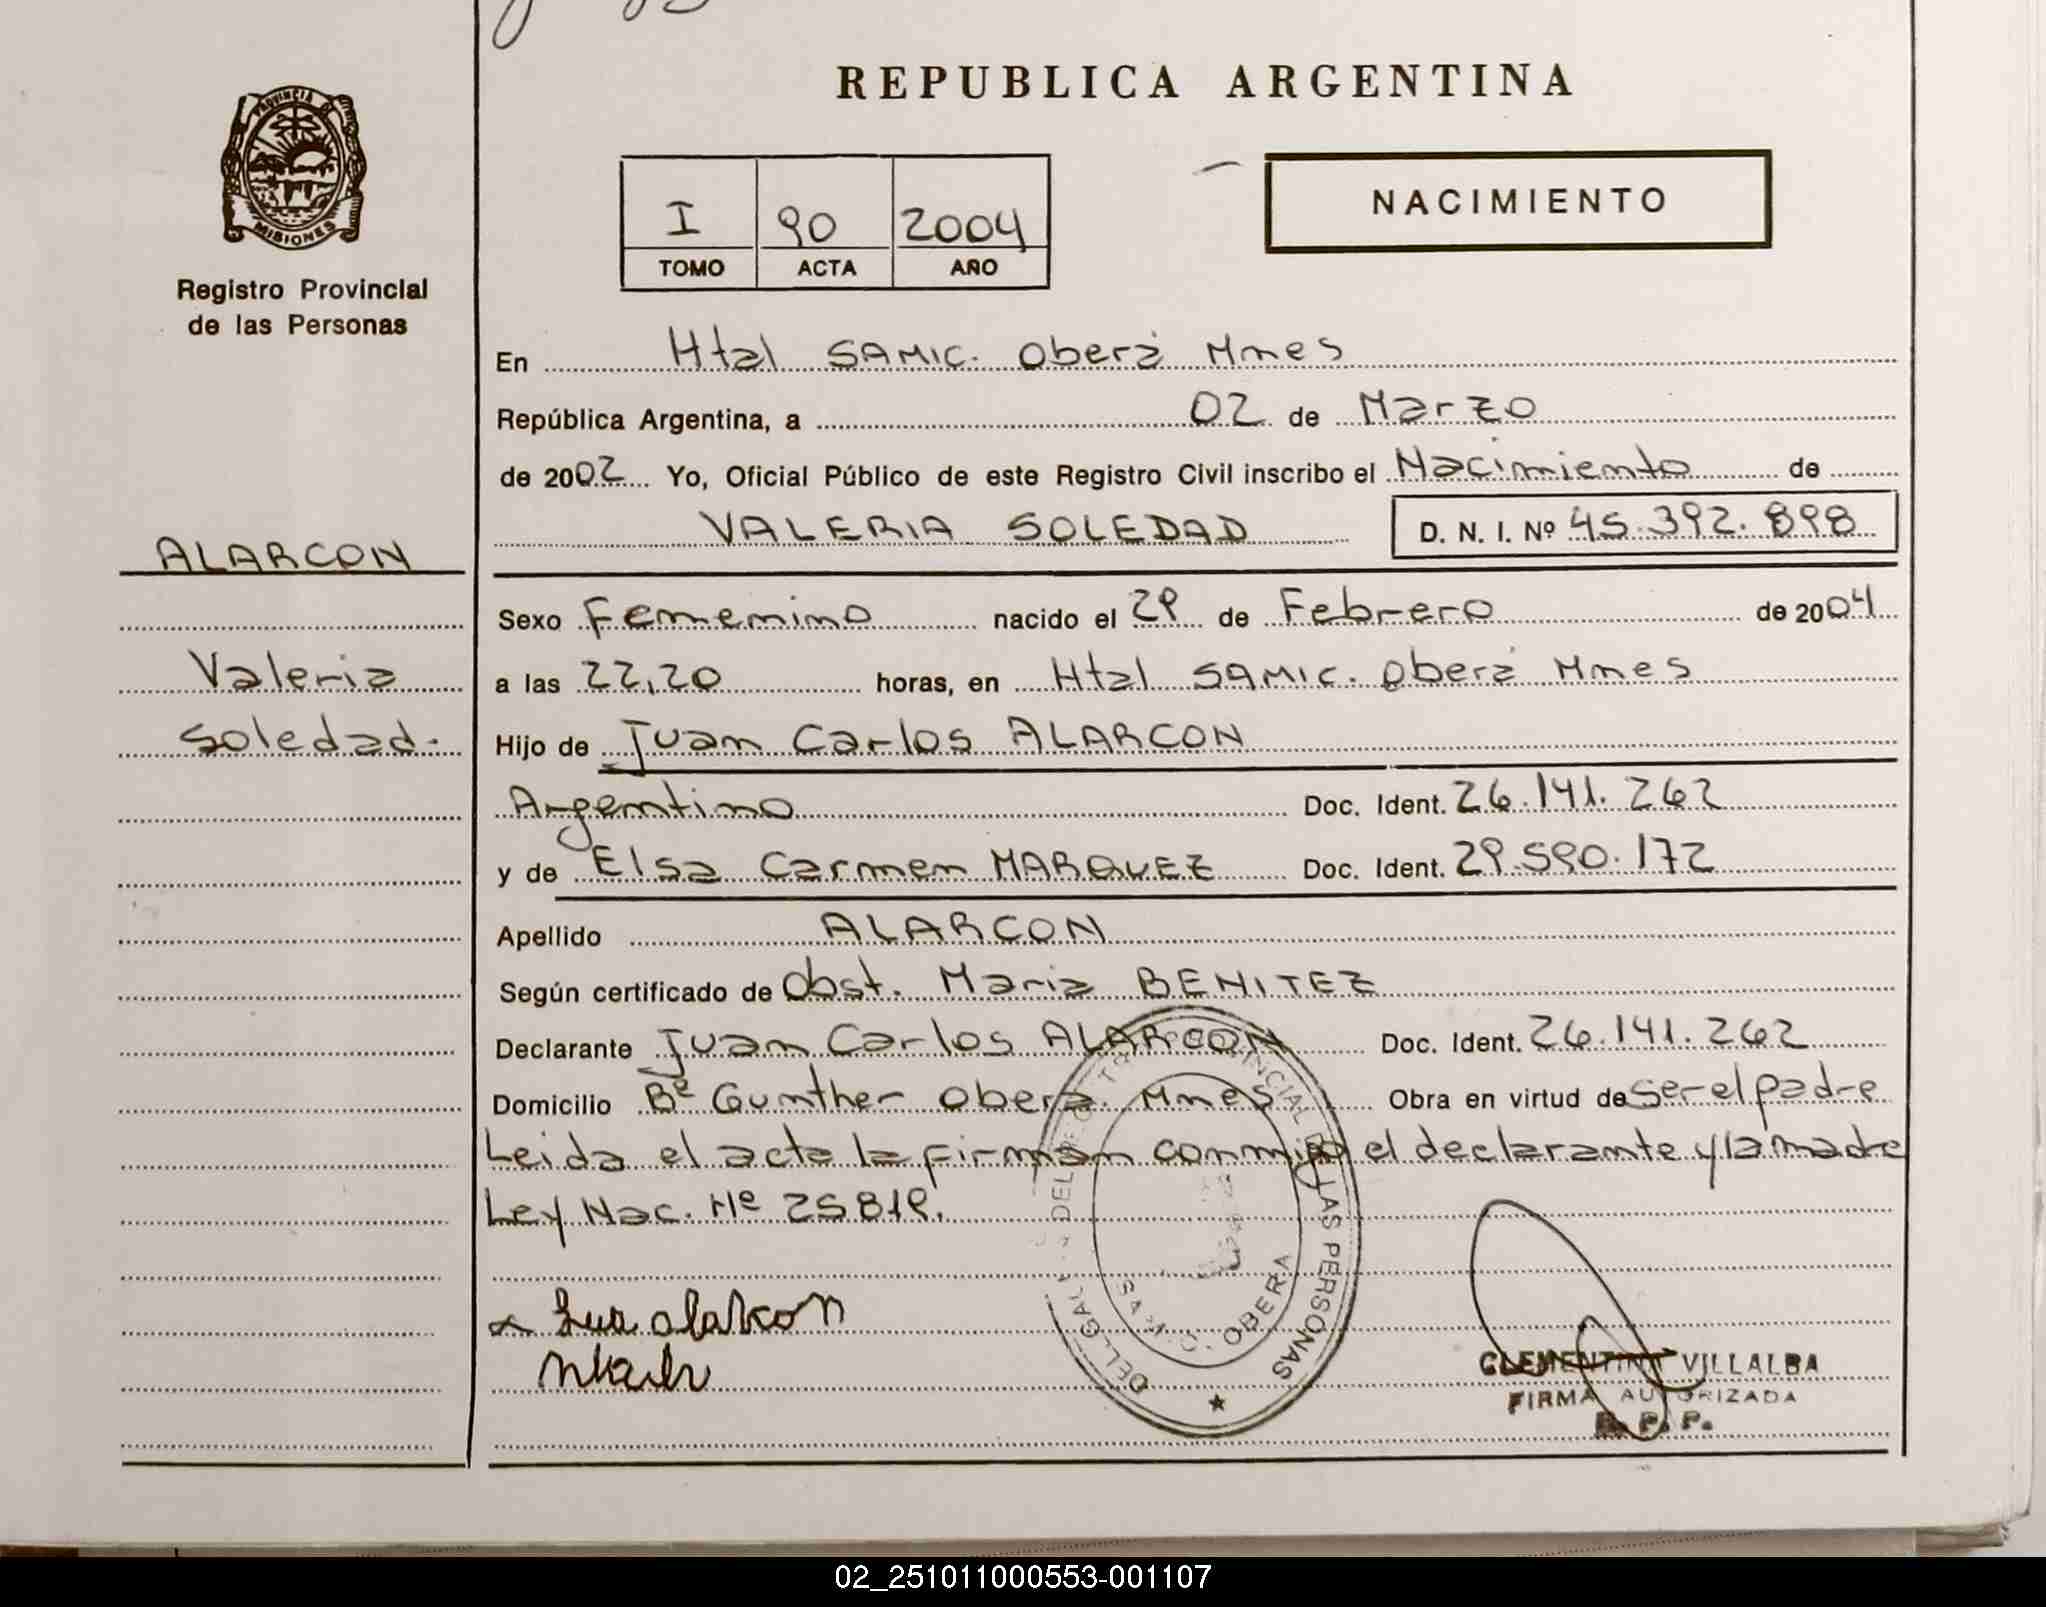 REPUBLICA ARGENTINA
PROVINCIA DE
MISIONES
Registro Provincial
de las Personas
I 90 2004
TOMO ACTA AÑO
NACIMIENTO
En Htal SAMIC. Oberá Mnes
República Argentina, a 02 de Marzo
de 2002 Yo, Oficial Público de este Registro Civil inscribo el Nacimiento de
VALERIA SOLEDAD D. N. I. Nº 45.392.898
ALARCON
Valeria
Soledad.
Sexo Femenino nacido el 29 de Febrero de 2004
a las 22,20 horas, en Htal SAMIC. Oberá Mnes
Hijo de Juan Carlos ALARCON
Argentino Doc. Ident. 26.141.262
y de Elsa Carmen MARQUEZ Doc. Ident. 29.590.172
Apellido ALARCON
Según certificado de Obst. Maria BENITEZ
Declarante Juan Carlos ALARCON Doc. Ident. 26.141.262
Domicilio Bº Gunther Obera. Mnes Obra en virtud de ser el padre
Leida el acta la firman conmigo el declarante y la madre
Ley Nac. Nº 25819.
alarcon
DEL REGISTRO PROVINCIAL DE LAS PERSONAS
OBERA
CLEMENTINA VILLALBA
FIRMA AUTORIZADA
R. P. P.
02_251011000553-001107